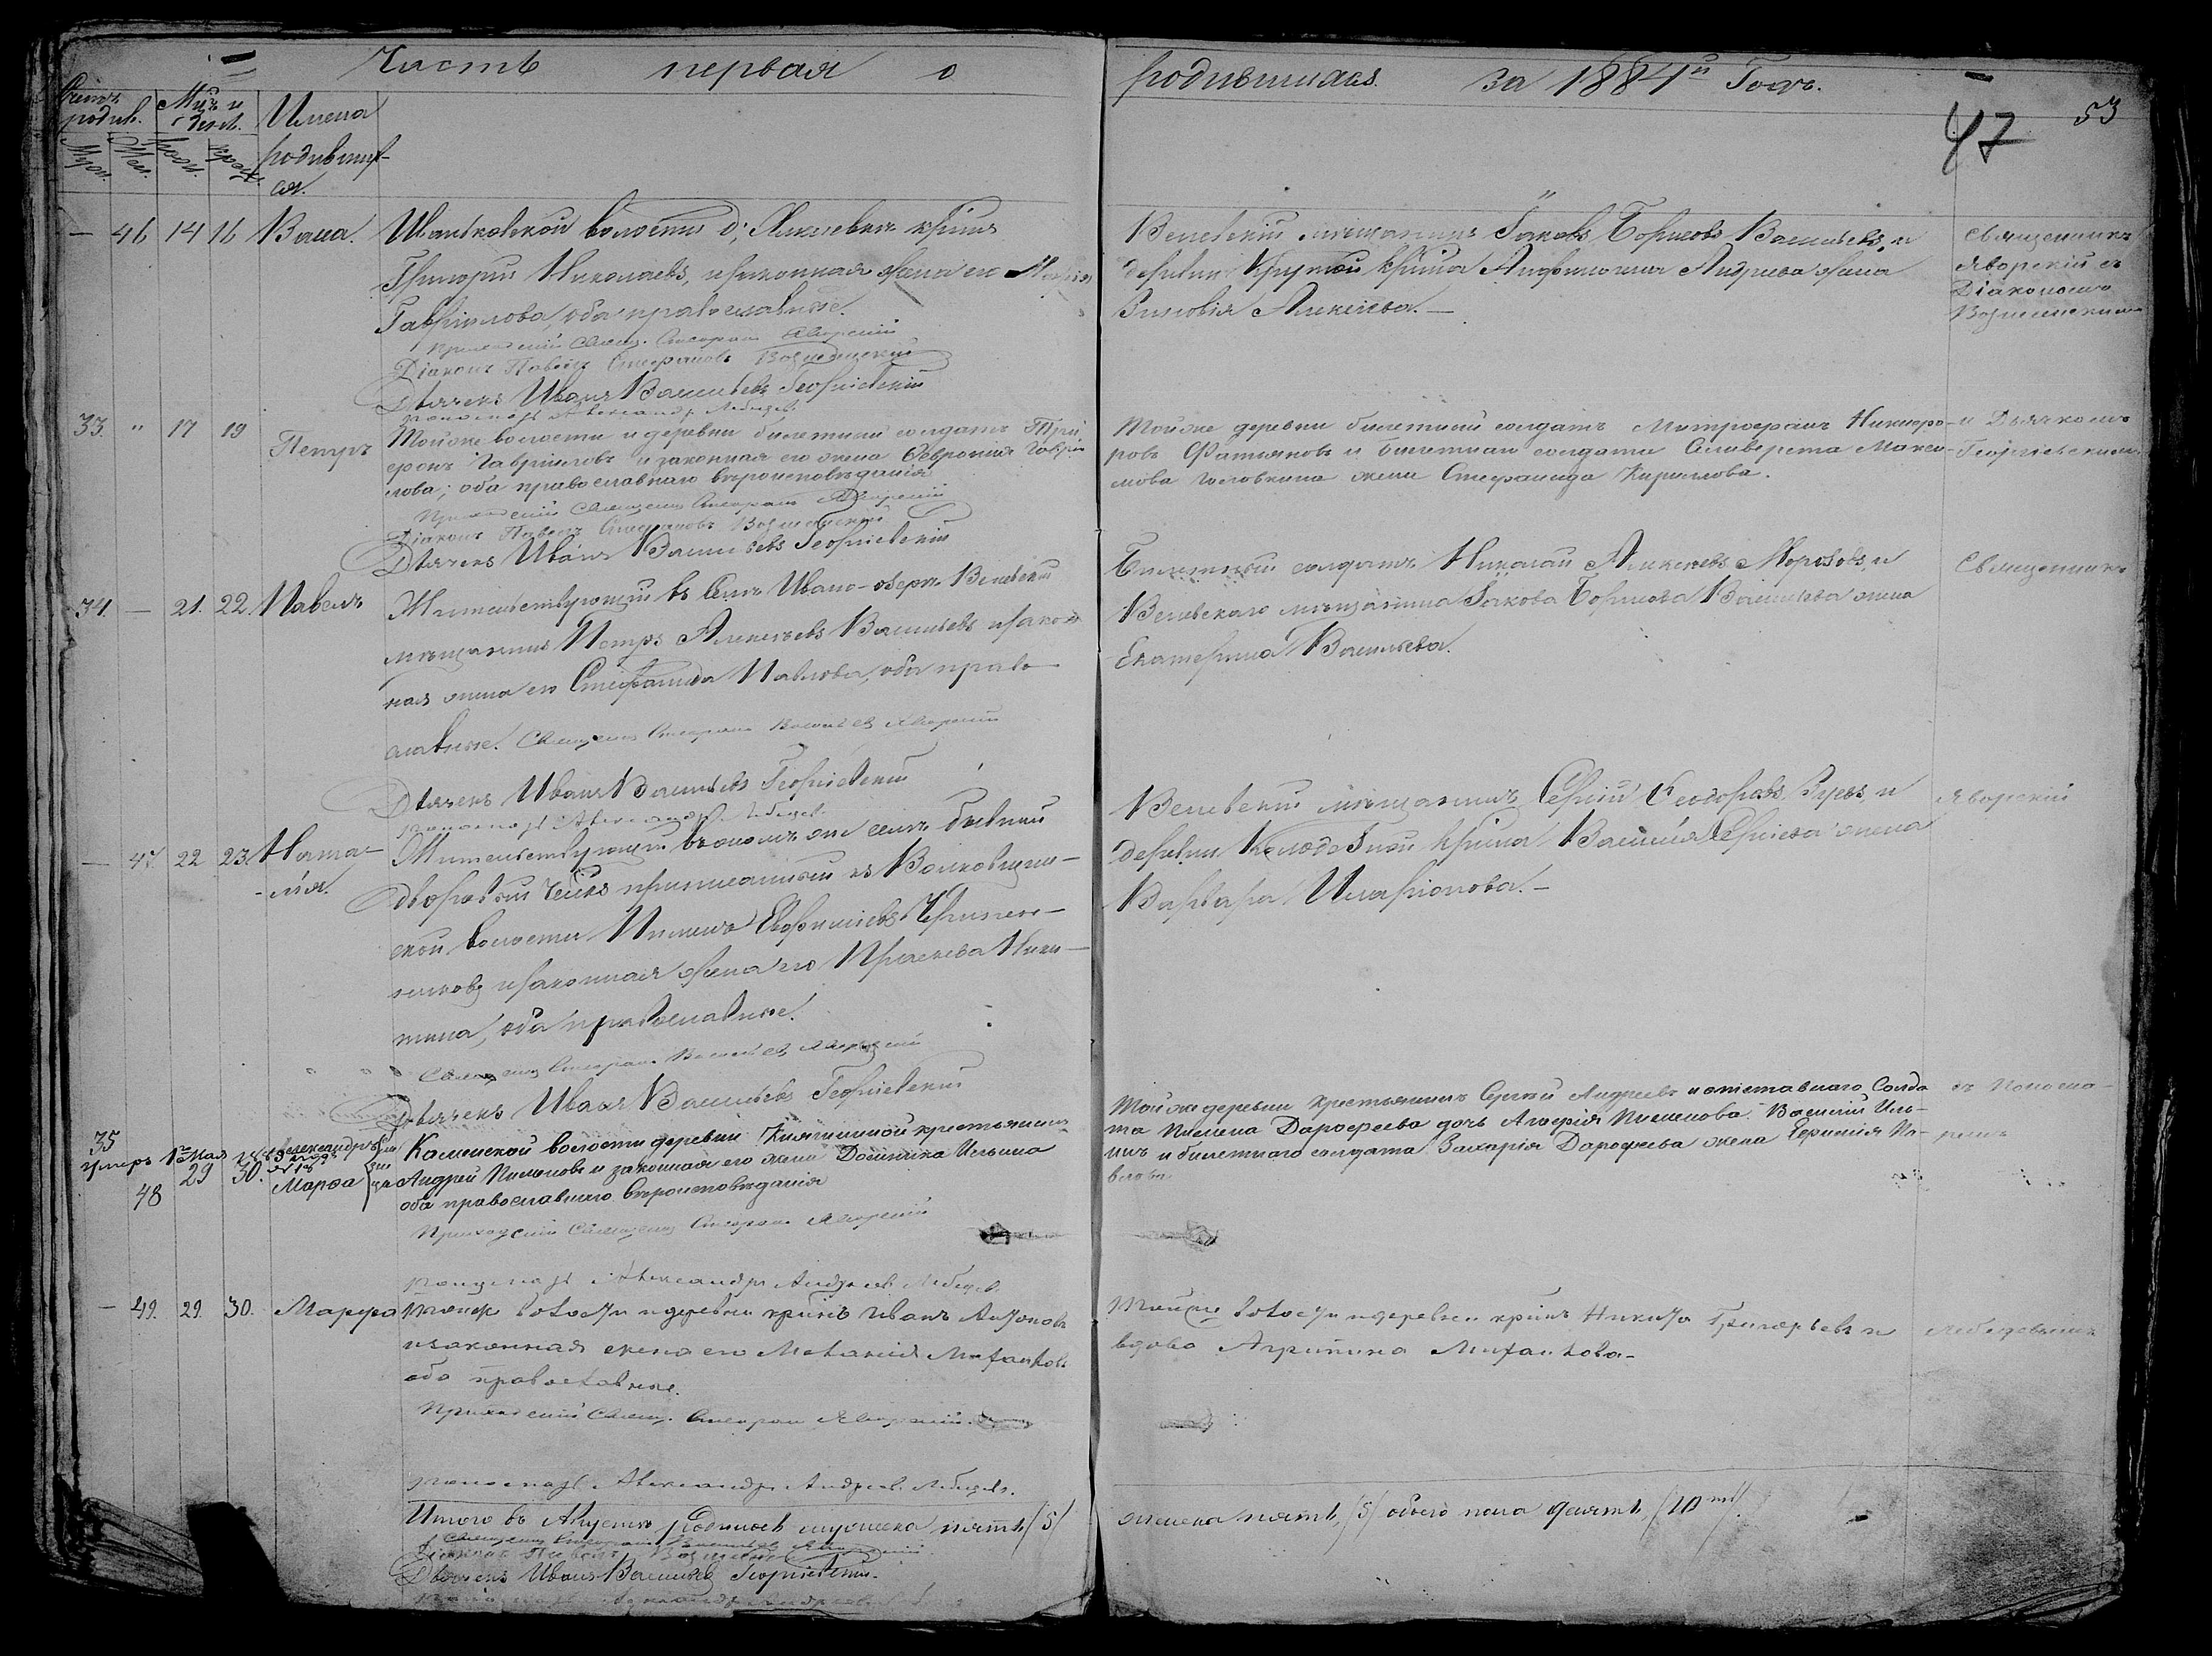 Часть первая о родившихся за 1884й Годъ.
47 53
Счетъ родив. Мцъ и день. Имена
Муж. Жен. рожд. крещ. родивших-
ся.
— 46 14 16 Васса. Ивановской волости д; Алексеевки кринъ
Григорій Николаевъ, и законная жена его
Гавриилова, оба православные.
Приходскій Свящ. Стефанъ Яворскій
Діаконъ Павелъ Стефановъ Вознесенскій
Дьячекъ Иванъ Васильевъ Георгіевскій
Пономарь Александръ Лебедев.
Веневскій мѣщанинъ Іаковъ Борисовъ Васильевъ, и
деревни Крутой крина Андреева жена
Зиновія Алексіева. —
Священникъ
Яворскій съ
Діакономъ
Вознесенскимъ
33. " 17 19 Петръ Тойже волости и деревни билетный солдатъ Три-
фонъ Гавриловъ и законная его жена Феврония Гаврии-
лова; оба православнаго вѣроисповѣданія
Приходскій Священникъ Стефанъ Яворскій
Діаконъ Павелъ Стефановъ Вознесенскій
Дьячекъ Иванъ Васильевъ Георгіевскій
Тойже деревни билетный солдатъ Митрофанъ Никифо-
ровъ Фатьяновъ и билетнаго солдата Сильверста Макси-
мова Головкина жена Стефанида Кириллова.
и Дьячкомъ
Георгіевскимъ.
34. — 21. 22. Павелъ Жительствующій въ Селѣ Ивано-озерѣ Веневскій
мѣщанинъ Петръ Алексѣевъ Васильевъ и закон-
ная жена его Стефанида Павлова, оба право-
славные. Священникъ Стефанъ Васильевъ Яворскій
Дьячекъ Иванъ Васильевъ Георгіевскій
Пономарь Александръ Лебедев.
Билетный солдатъ Николай Алексеевъ Морозовъ, и
Веневскаго мѣщанина Іакова Борисова Васильева жена
Екатерина Васильева.
Священникъ
— 47. 22 23. Ната-
-лія. Жительствующій въ ономъ же селѣ бывшій
дворовый челкъ приписанный къ Волковщин-
ской волости Пименъ Ефимиевъ
и законная жена его Прасковья Ники-
тина, оба православные.
Священникъ Стефанъ Васильевъ Яворскій
Дьячекъ Иванъ Васильевъ Георгіевскій
Веневскій мѣщанинъ Сергій Феодоровъ Зуевъ и
деревни Колодезной крина Василія Сергіева жена
Варвара Иларіонова. —
Яворскій
35 умеръ Мая Александръ
48 29 30. Марѳа Каменской волости деревни Княгининой крестьянинъ
Андрей Пименовъ и законная его жена Домника Ильина
оба православнаго вѣроисповѣданія
Приходскій Священникъ Стефанъ Яворскій
Пономарь Александръ Андреев Лебедев.
Тойже деревни крестьянинъ Сергій Андреевъ и отставнаго Солда-
та Пимена Дарофеева дочь Василій Иль-
инъ и билетнаго солдата Захарія Дарофеева жена Па-
влова.
съ Понома-
ремъ
— 49. 29. 30. Марфа Тойже волости и деревни кринъ Иванъ Антоновъ
и законная жена его Меланія Михайлова
оба православные.
Приходскій Свящ. Стефанъ Яворскій.
Пономарь Александръ Андреев Лебедев.
Тойже волости и деревни кринъ Никита Григорьевъ и
вдова Агрипина Михайлова-
Лебедевымъ
Итого въ Августѣ родилось мужеска пять /5/ женска пять, /5/ обоего пола десять, /10ть/.
Священникъ Стефанъ Васильевъ Яворскій.
Діаконъ Павелъ Вознесенскій
Дьячекъ Иванъ Васильевъ Георгіевскій.
Пономарь Александръ Андреевъ